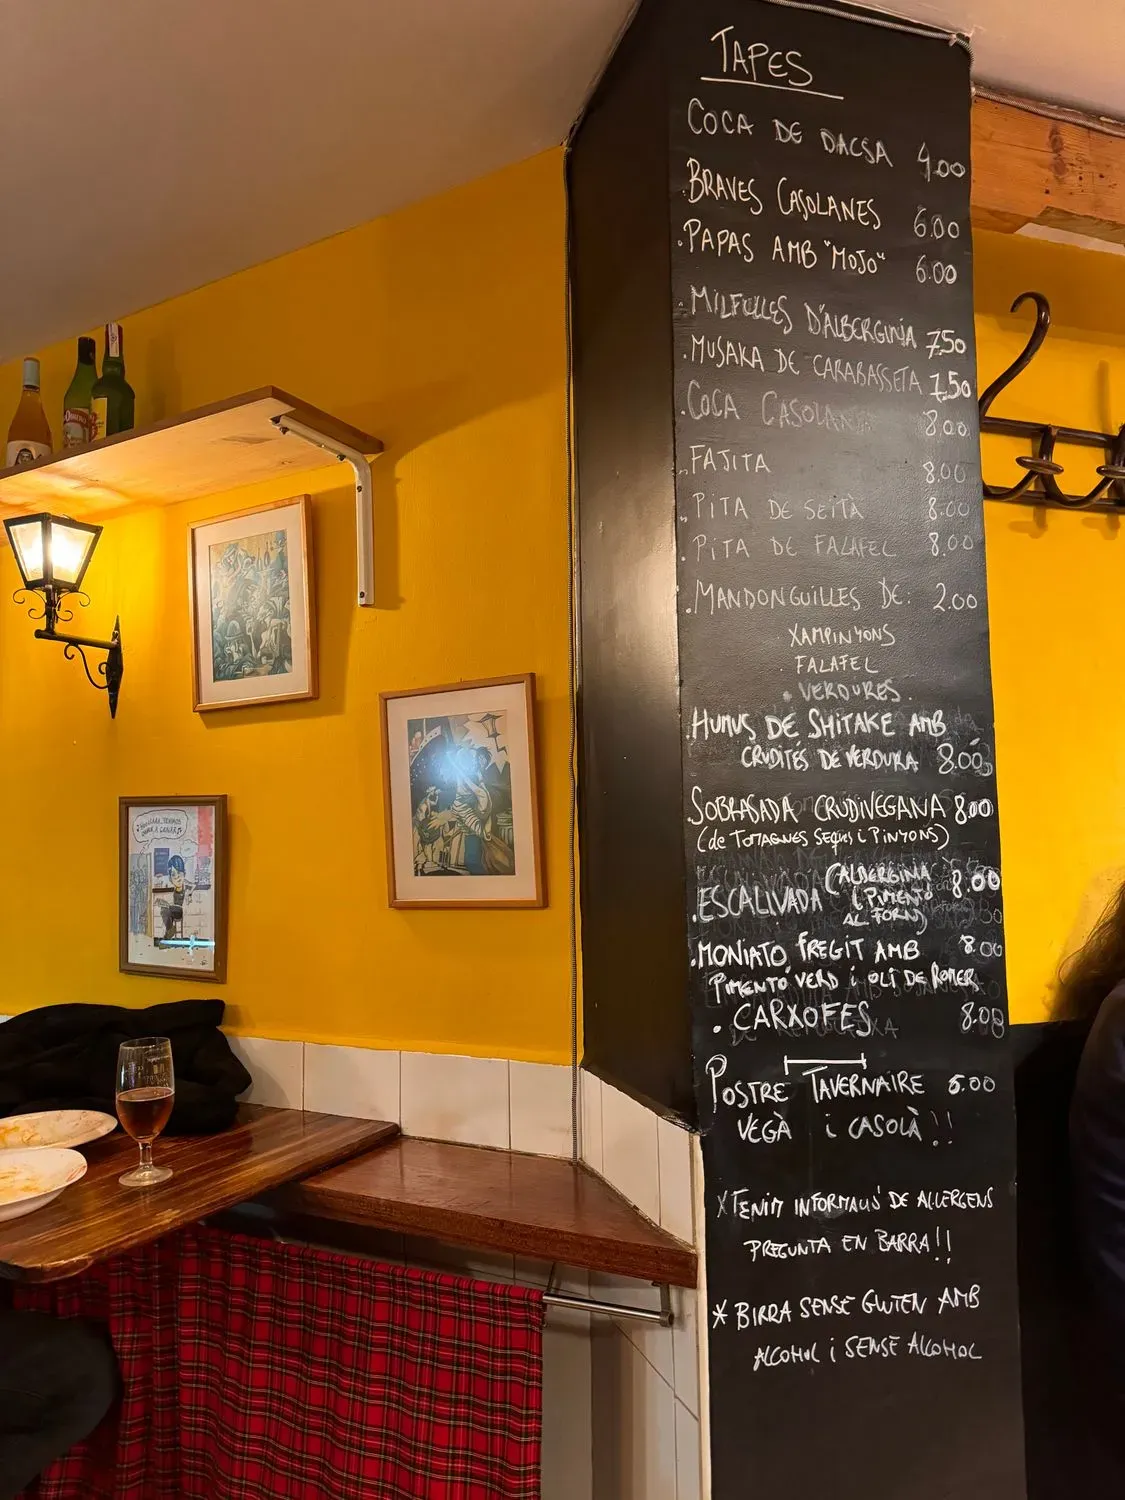 TAPES
COCA DE DACSA 4.00
.BRAVES CASOLANES 6.00
.PAPAS AMB "MOJO" 6.00
.MILFULLES D'ALBERGINIA 7,50
.MUSAKA DE CARABASSETA 7,50
.COCA CASOLANA 8,00
.FAJITA 8.00
.PITA DE SEITÀ 8.00
.PITA DE FALAFEL 8.00
.MANDONGUILLES DE: 2.00
XAMPINYONS
FALAFEL
. VERDURES.
.HUMUS DE SHITAKE AMB
CRUDITÉS DE VERDURA 8.00
SOBRASADA CRUDIVEGANA 8.00
(de TOMAQUES SEQUES i PINYONS)
.ESCALIVADA (ALBERGINIA i PIMENTÓ AL FORN) 8.00
.MONIATO FREGIT AMB 8.00
PIMENTÓ VERD i OLI DE ROMER
. CARXOFES 8.00
POSTRE TAVERNAIRE 5.00
VEGÀ i CASOLÀ!!
*TENIM INFORMACIÓ DE AL·LERGENS
PREGUNTA EN BARRA!!
* BIRRA SENSE GLUTEN AMB
ALCOHOL i SENSE ALCOHOL